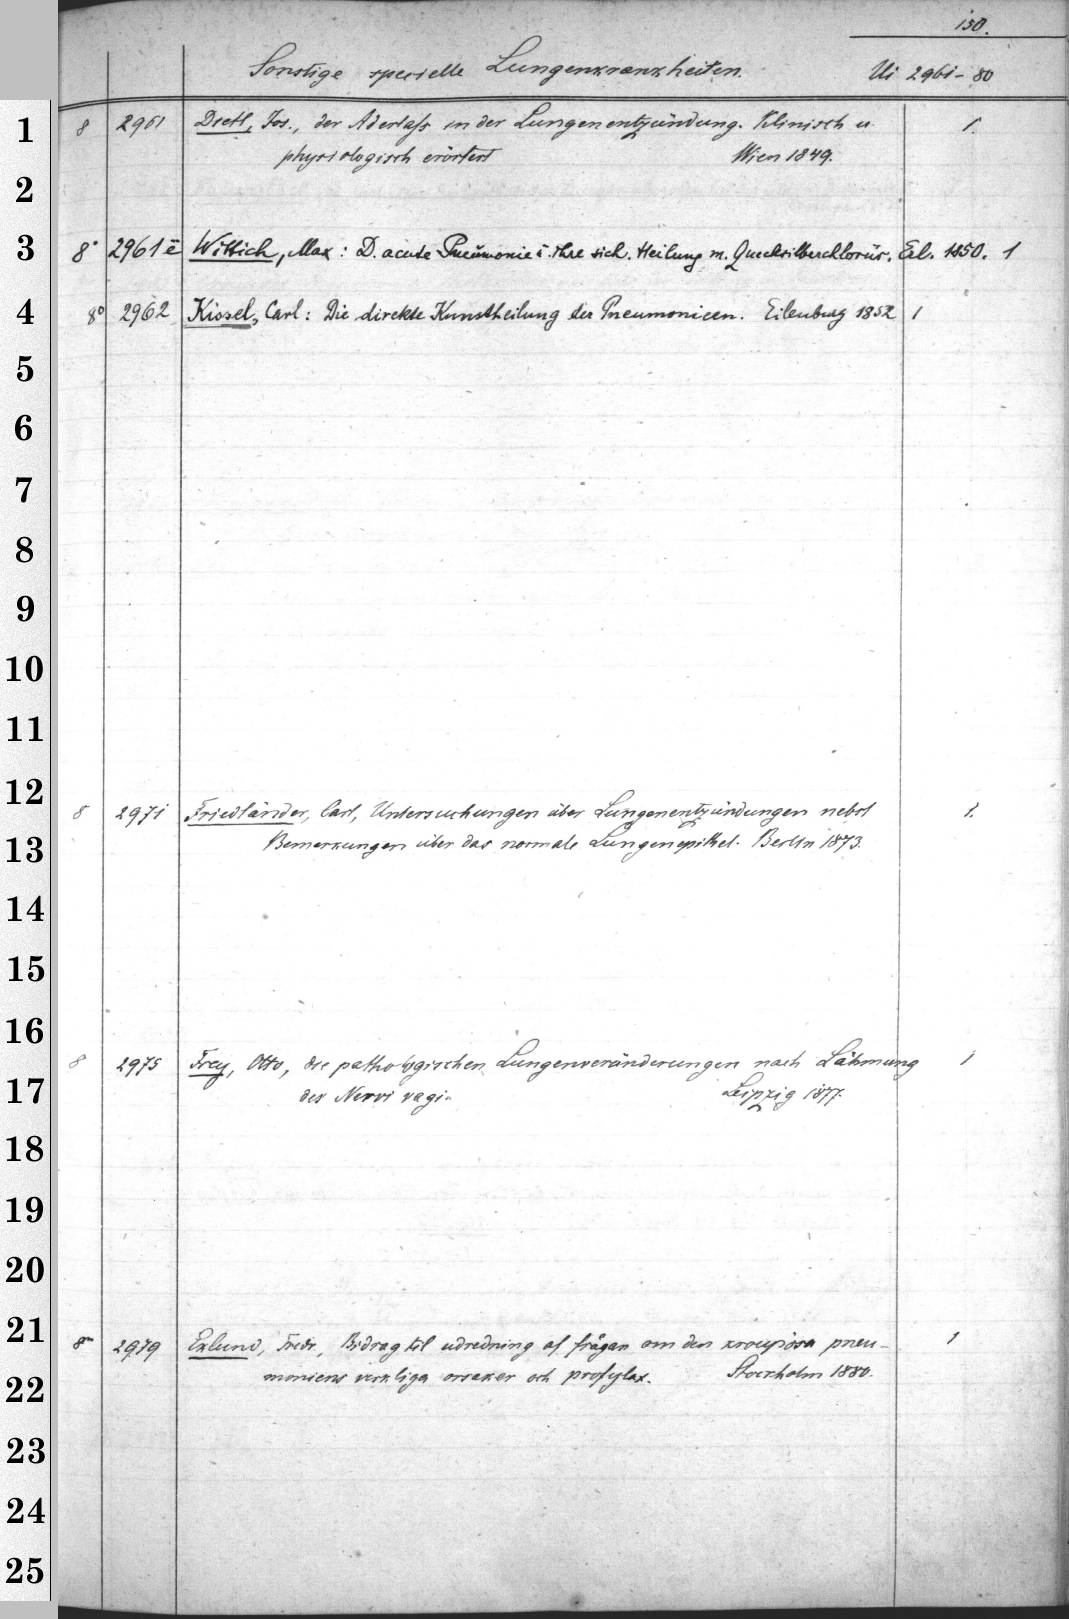 150.
Sonstige specielle Lungenkrankheiten. Ui 2961-80
1 8 2961 Dietl, Jos., der Aderlaß in der Lungenentzündung. Klinisch u. 1.
physiologisch erörtert Wien 1849.
2
3 8° 2961 Wittich, Max: D. acute Pneumonie u. ihre sich. Heilung m. Quecksilberchlorür. Erl. 1850. 1
4 8° 2962 Kissel, Carl: Die direkte Kunstheilung der Pneumonieen. Eilenburg 1852 1
5
6
7
8
9
10
11
12 8 2971 Friedländer, Carl, Untersuchungen über Lungenentzündungen nebst 1.
13 Bemerkungen über das normale Lungenepithel. Berlin 1873.
14
15
16 8 2975 Frey, Otto, die pathologischen Lungenveränderungen nach Lähmung 1
17 der Nervi vagi. Leipzig 1877.
18
19
20
21 8° 2979 Eklund, Fredr., Bidrag til udredning af frågan om den kroupösa pneu- 1
22 moniens verkliga orsaker och profylax. Stockholm 1880.
23
24
25